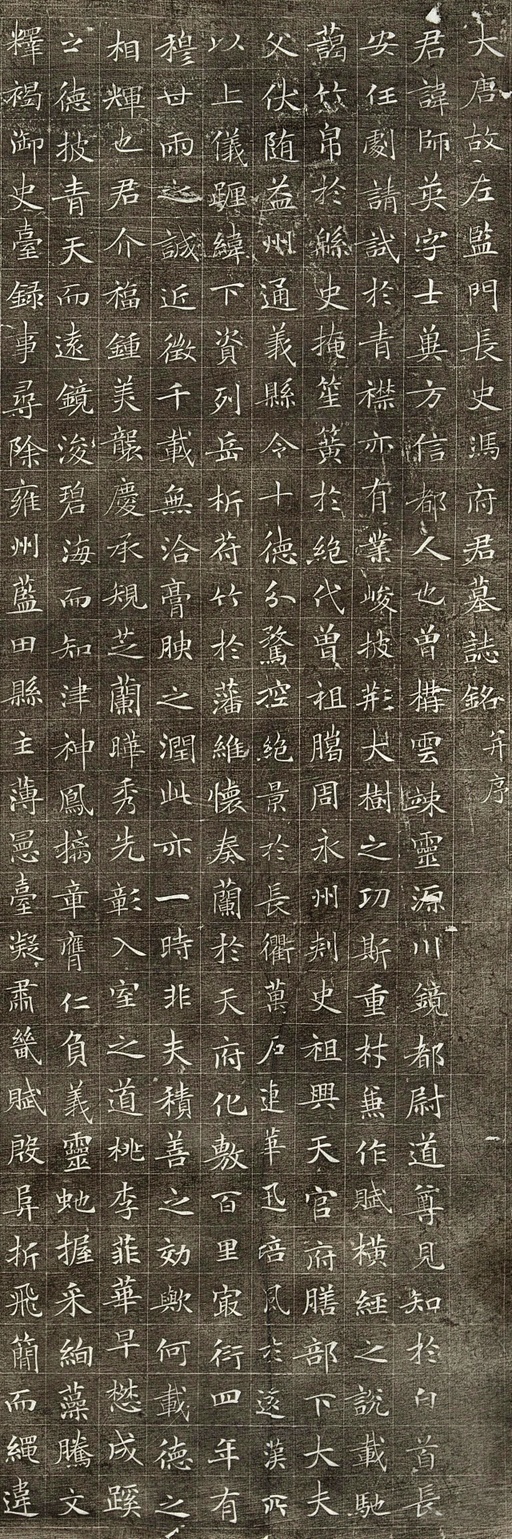 大唐故左監門長史馮府君墓誌銘并序
君諱師英字士㒷方信都人也曽構雲竦靈源川鏡都尉道尊見知於白首長
安任劇請試於青襟亦有業峻披荆大樹之功斯重材兼作賦橫經之說載馳
藹竹帛於緜史掩笙簧於絶代曽祖鵰周永州刾史祖興天官府膳部下大夫
父伏随益州通義縣令十德分騖控絶景於長衢萬石連華迅培風於遥漢所
以上儀躔緯下資列岳析苻竹於藩維懷奏蘭於天府化敷百里㝡衍四年有
穆甘雨之誠近徵千載無洽膏腴之潤此亦一時非夫積善之効歟何載德之
相輝也君介福鍾美襲慶承規芝蘭曄秀先彰入室之道桃李菲華早懋成蹊
之德披青天而遠鏡浚碧海而知津神鳳摛章膺仁負義靈虵握采絢藻騰文
釋褐御史臺録事尋除雍州藍田縣主薄霜臺凝肅畿賦殷阜折飛簡而繩違